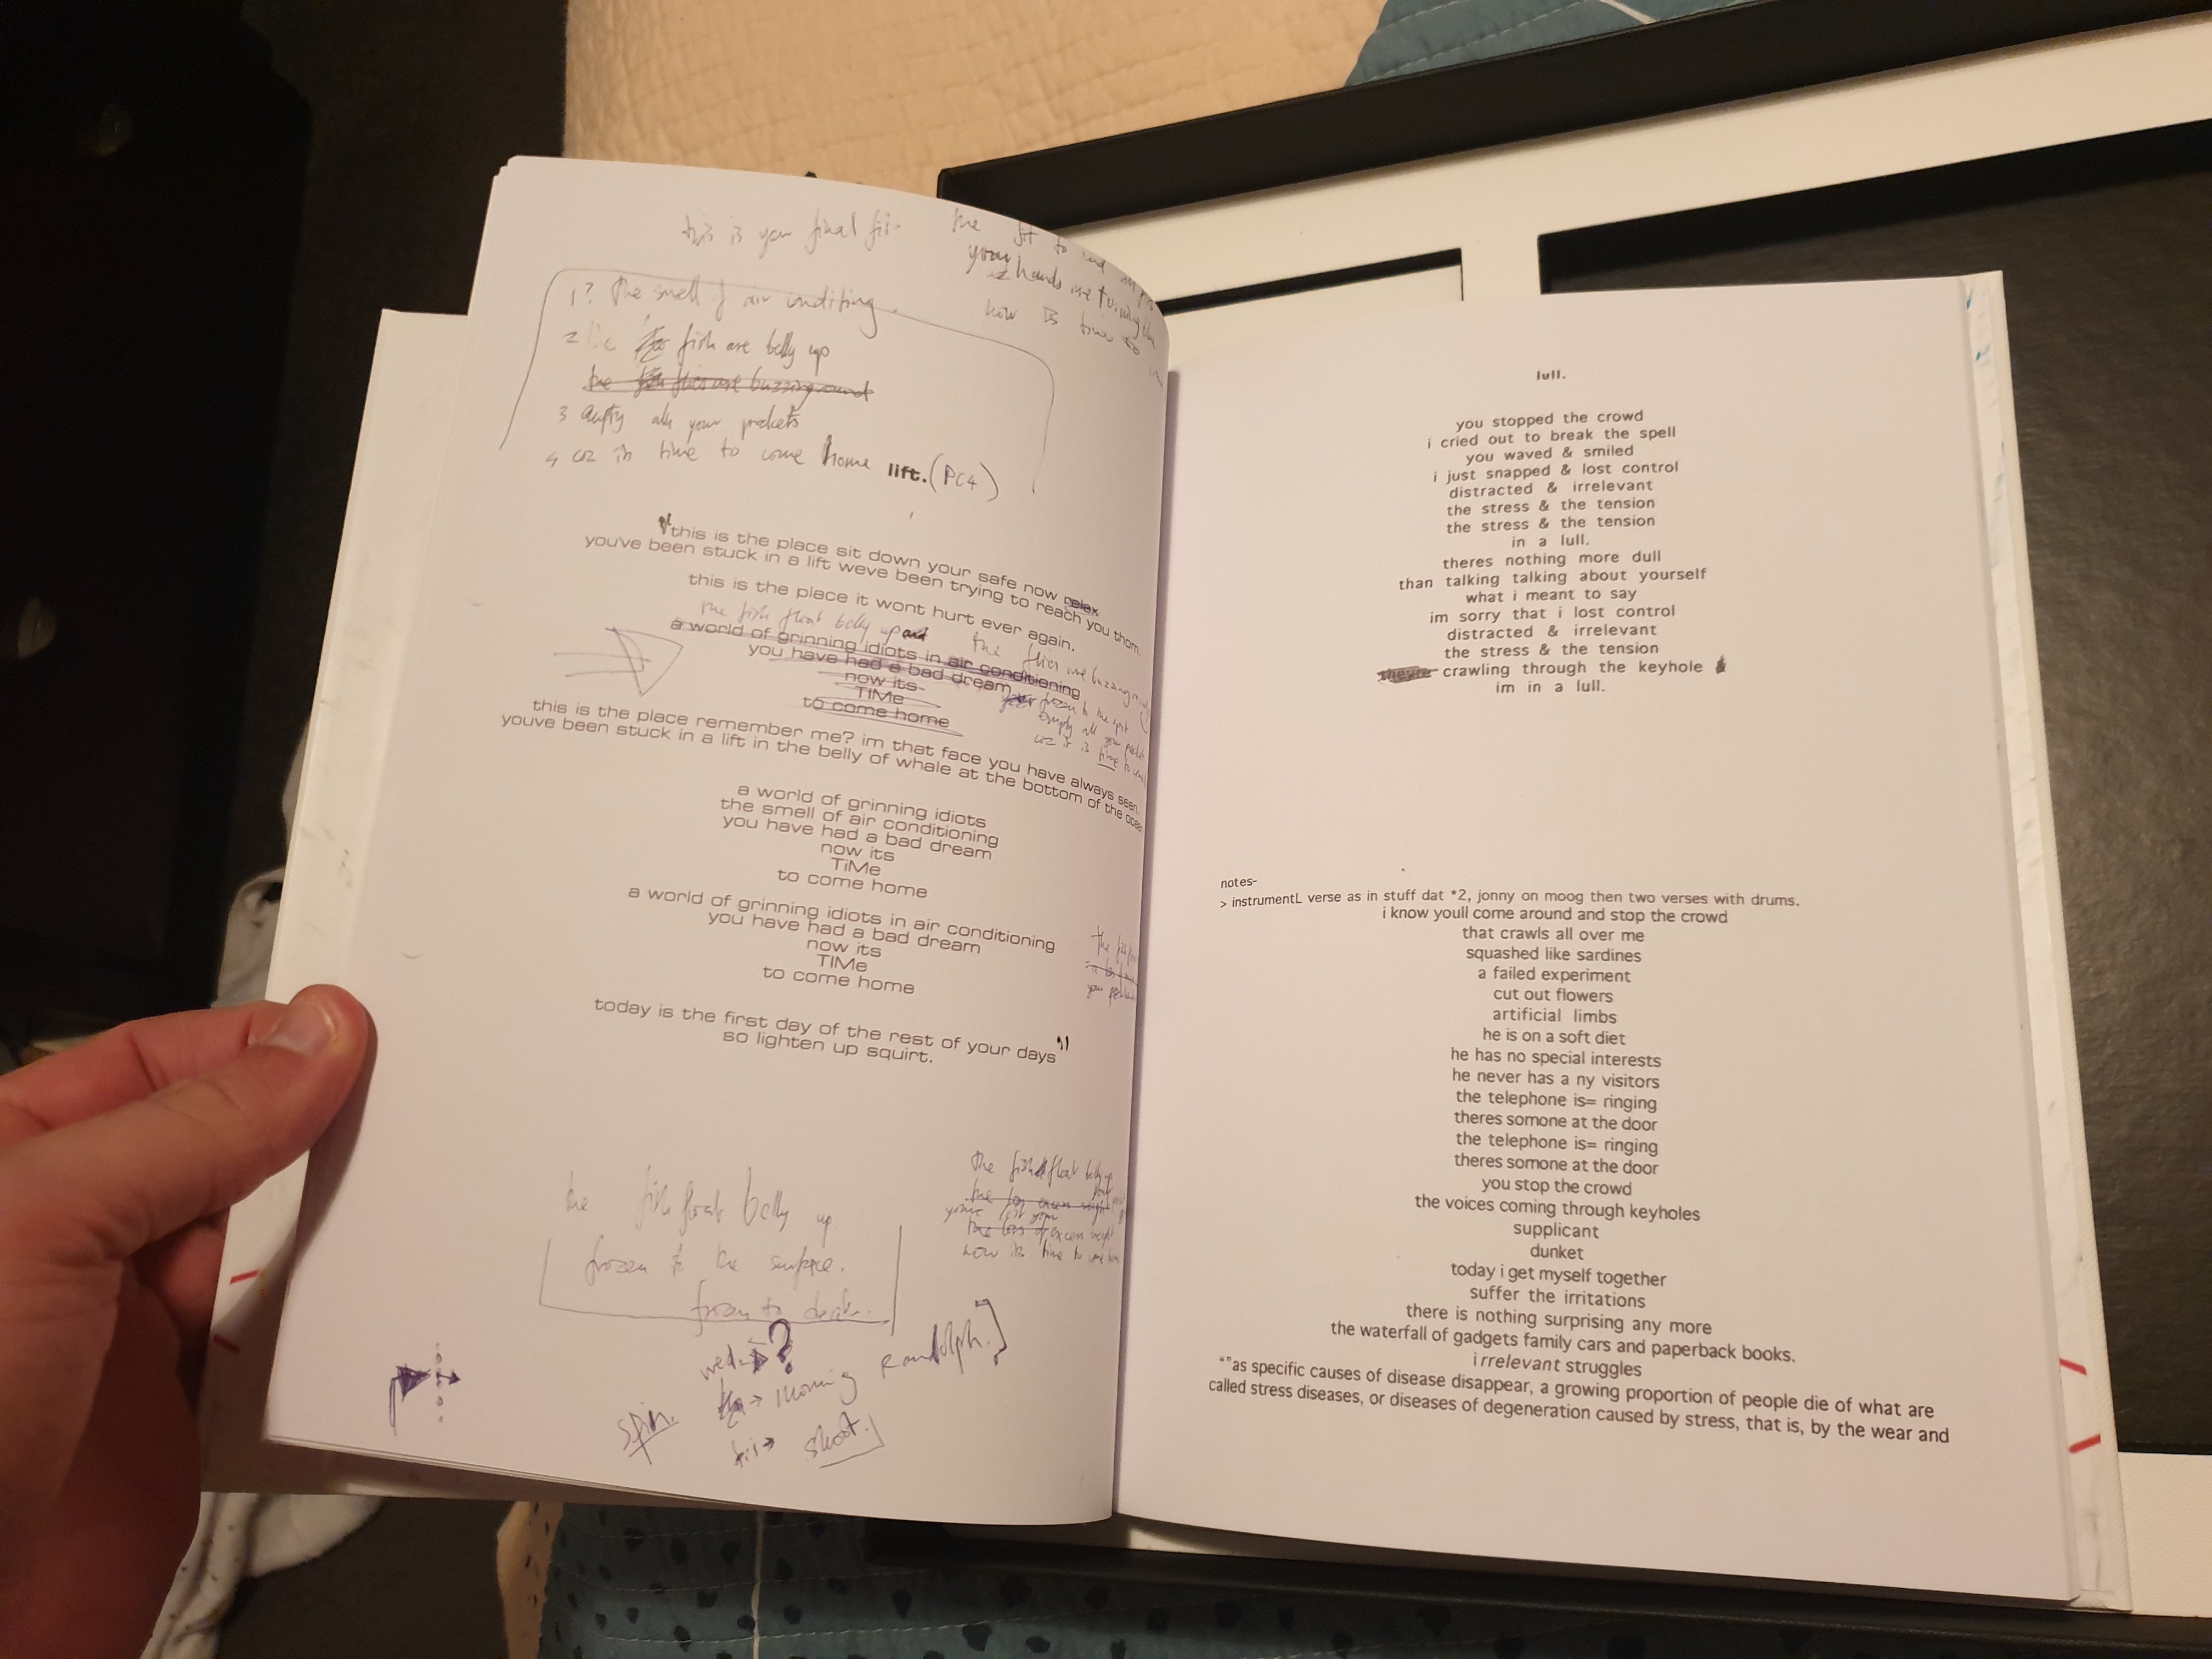 this is your final fit
the fit to
your hands are turning
now is time to
1? The smell of air conditing.
2 the fish are belly up
the flies are buzzing round
3 empty all your pockets
4 coz its time to come home
lift. (PC4)
"this is the place sit down your safe now relax
youve been stuck in a lift weve been trying to reach you thom.
this is the place it wont hurt ever again.
the fish float belly up and the flies are buzzing
a world of grinning idiots in air conditioning
you have had a bad dream
now its
TIMe
to come home
frozen to the spot
empty all your pockets
coz it is time to
this is the place remember me? im that face you have always seen.
youve been stuck in a lift in the belly of whale at the bottom of the ocean
a world of grinning idiots
the smell of air conditioning
you have had a bad dream
now its
TiMe
to come home
a world of grinning idiots in air conditioning
you have had a bad dream
now its
TIMe
to come home
the
your
today is the first day of the rest of your days"
so lighten up squirt.
the fish float belly up
the excess weight
your
the loss of excess weight
now its time to come home
the fish float belly up.
frozen to the surface.
frozen to
wed → ?
→ morning Randolph.]
spin.
fri → shoot.]
lull.
you stopped the crowd
i cried out to break the spell
you waved & smiled
i just snapped & lost control
distracted & irrelevant
the stress & the tension
the stress & the tension
in a lull.
theres nothing more dull
than talking talking about yourself
what i meant to say
im sorry that i lost control
distracted & irrelevant
the stress & the tension
theyre crawling through the keyhole &
im in a lull.
notes-
> instrumentL verse as in stuff dat *2, jonny on moog then two verses with drums.
i know youll come around and stop the crowd
that crawls all over me
squashed like sardines
a failed experiment
cut out flowers
artificial limbs
he is on a soft diet
he has no special interests
he never has a ny visitors
the telephone is= ringing
theres somone at the door
the telephone is= ringing
theres somone at the door
you stop the crowd
the voices coming through keyholes
supplicant
dunket
today i get myself together
suffer the irritations
there is nothing surprising any more
the waterfall of gadgets family cars and paperback books.
irrelevant struggles
“”as specific causes of disease disappear, a growing proportion of people die of what are
called stress diseases, or diseases of degeneration caused by stress, that is, by the wear and